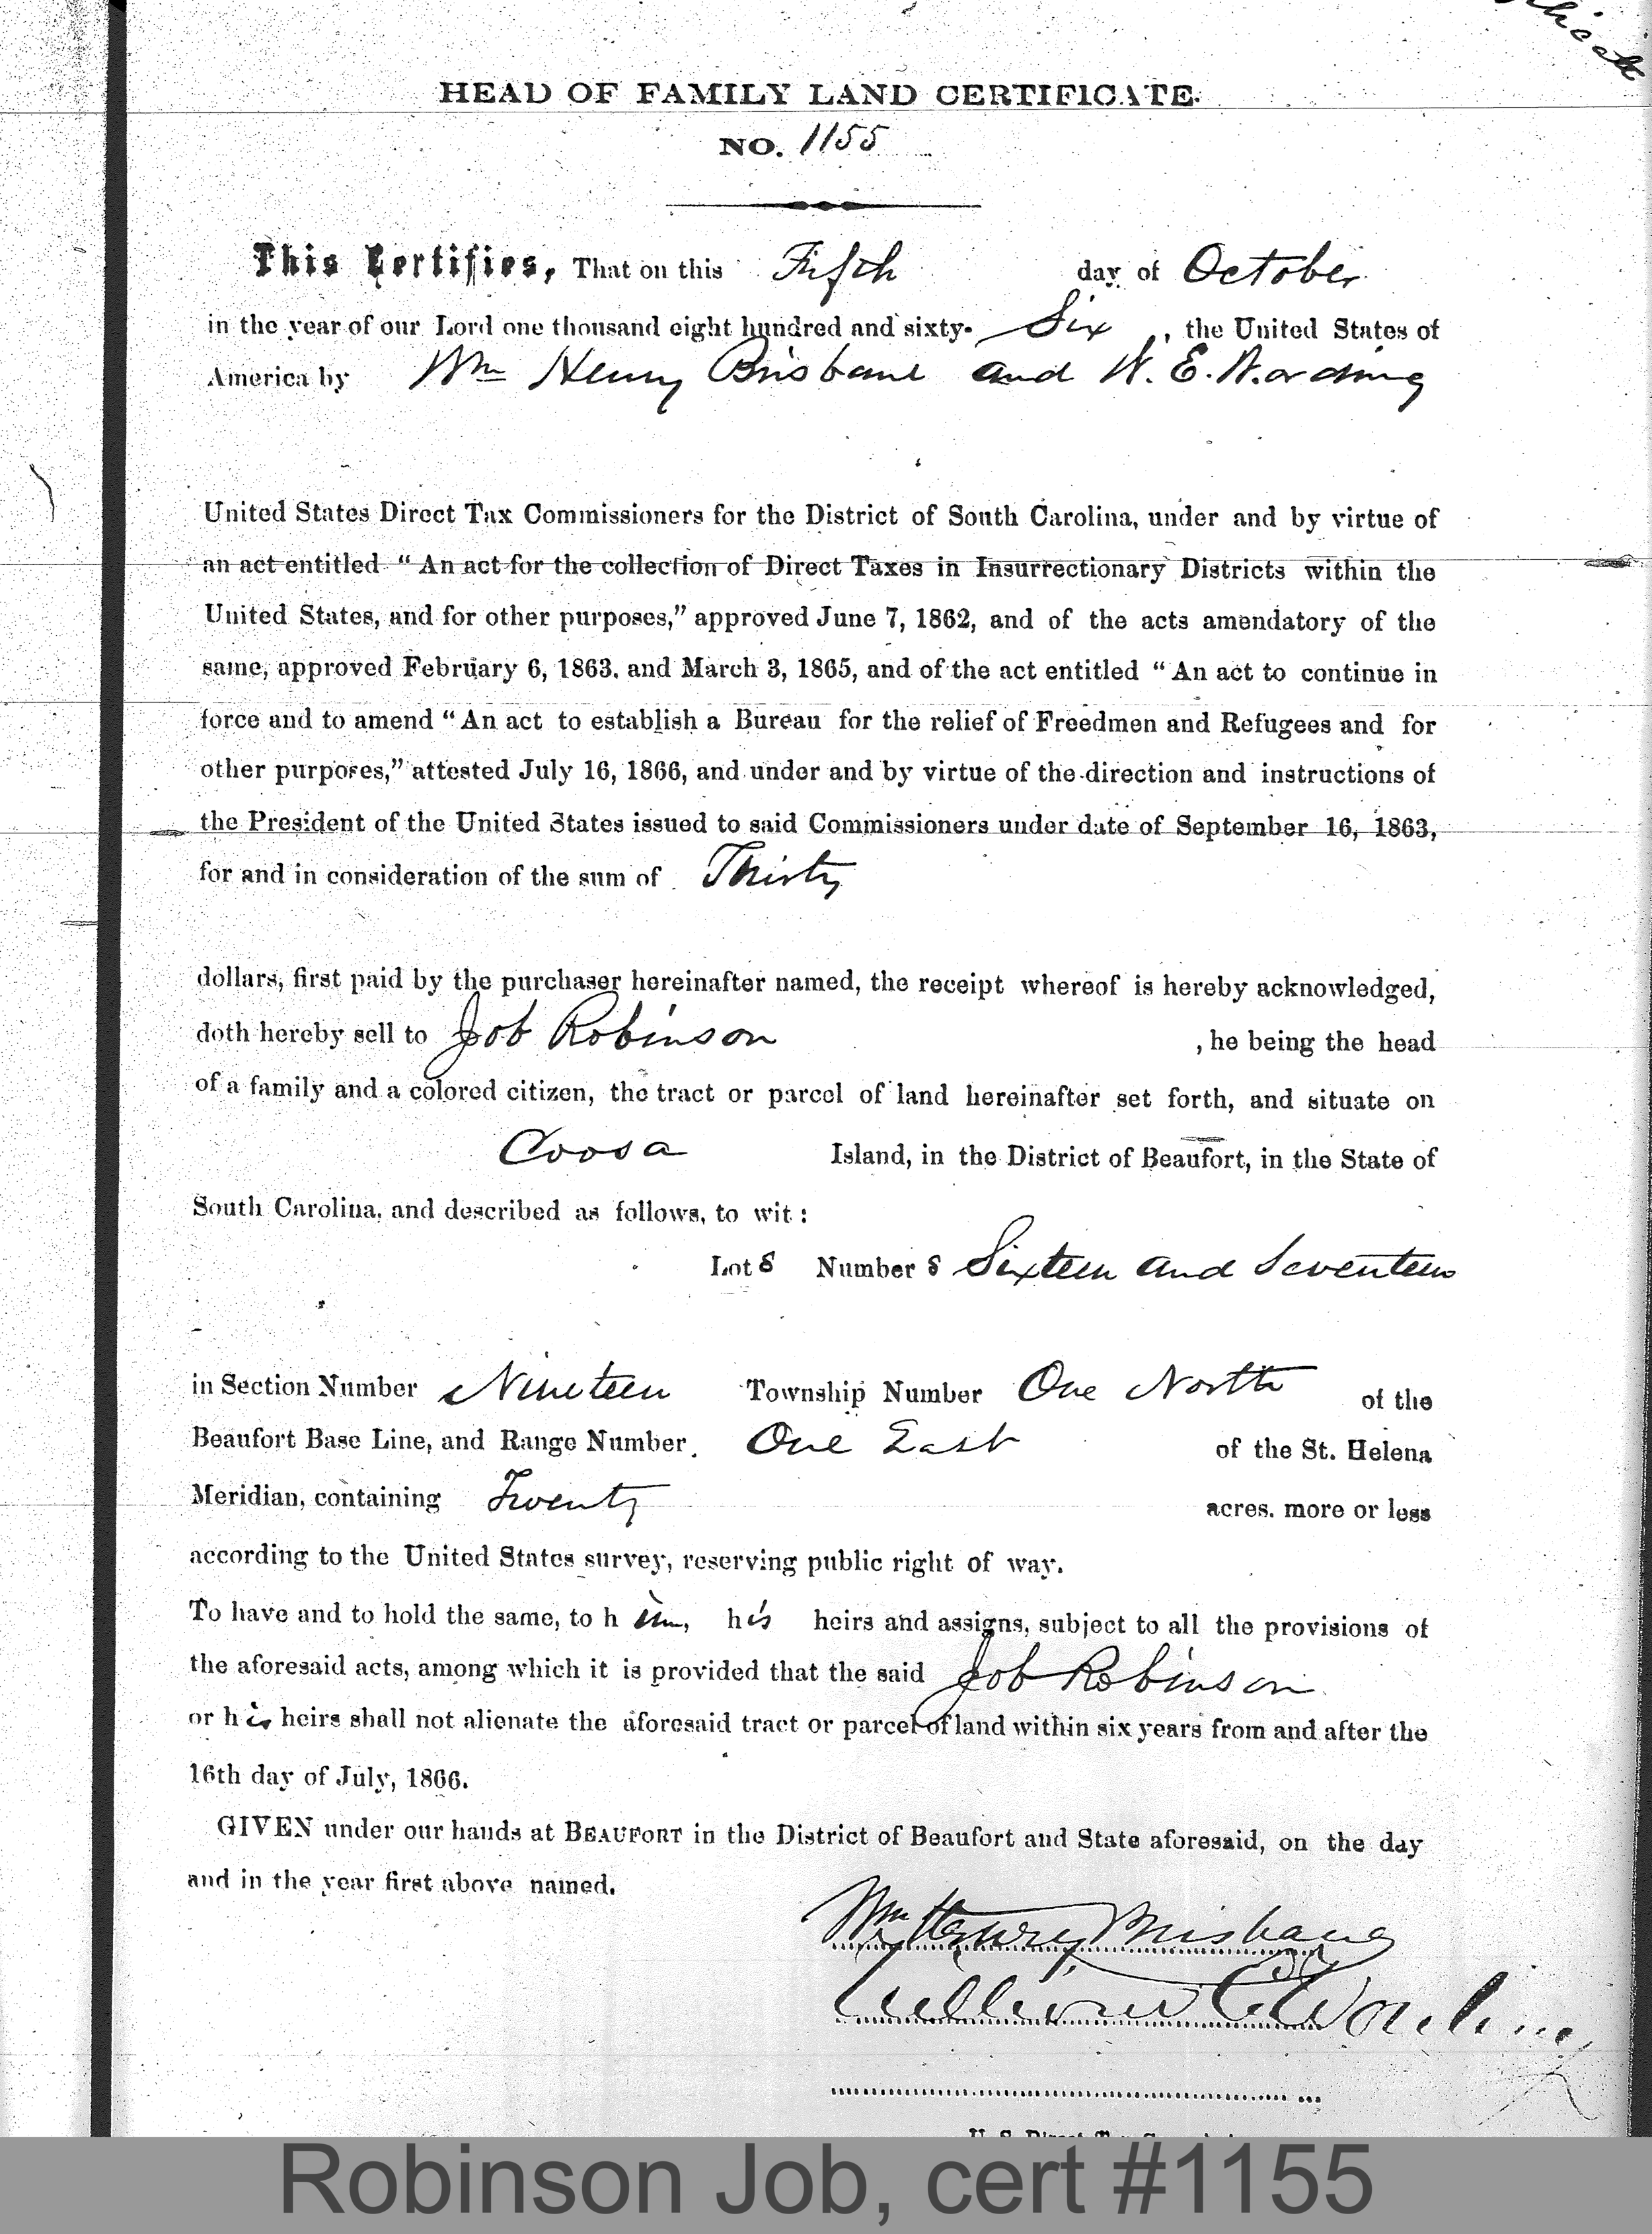 HEAD OF FAMILY LAND CERTIFICATE.
NO. 1155
This Certifies, That on this Fifth day of October
in the year of our Lord one thousand eight hundred and sixty- Six, the United States of
America by Wm Henry Brisbane and W. E. Wording
United States Direct Tax Commissioners for the District of South Carolina, under and by virtue of
an act entitled “An act for the collection of Direct Taxes in Insurrectionary Districts within the
United States, and for other purposes,” approved June 7, 1862, and of the acts amendatory of the
same, approved February 6, 1863. and March 3, 1865, and of the act entitled “An act to continue in
force and to amend “An act to establish a Bureau for the relief of Freedmen and Refugees and for
other purposes,” attested July 16, 1866, and under and by virtue of the direction and instructions of
the President of the United States issued to said Commissioners under date of September 16, 1863,
for and in consideration of the sum of Thirty
dollars, first paid by the purchaser hereinafter named, the receipt whereof is hereby acknowledged,
doth hereby sell to Job Robinson, he being the head
of a family and a colored citizen, the tract or parcel of land hereinafter set forth, and situate on
Coosa Island, in the District of Beaufort, in the State of
South Carolina, and described as follows, to wit:
Lots Numbers Sixteen and Seventeen
in Section Number Nineteen Township Number One North of the
Beaufort Base Line, and Range Number One East of the St. Helena
Meridian, containing Twenty acres. more or less
according to the United States survey, reserving public right of way.
To have and to hold the same, to him, his heirs and assigns, subject to all the provisions of
the aforesaid acts, among which it is provided that the said Job Robinson
or his heirs shall not alienate the aforesaid tract or parcel of land within six years from and after the
16th day of July, 1866.
GIVEN under our hands at BEAUFORT in the District of Beaufort and State aforesaid, on the day
and in the year first above named.
Wm Henry Brisbane
William E Wording
Robinson Job, cert #1155